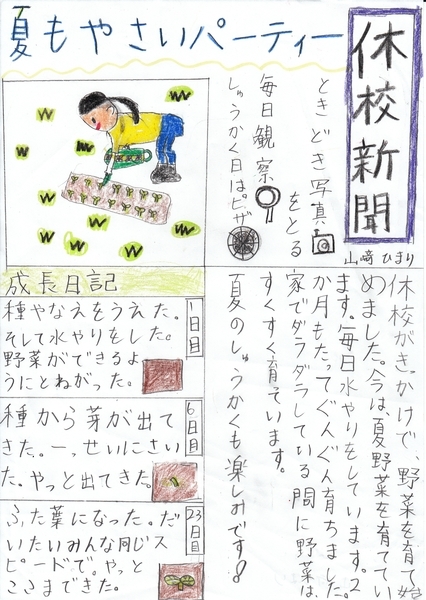 休校新聞
山﨑 ひまり
夏もやさいパーティー
ときどき写真をとる
毎日観察
しゅうかく日はピザ
休校がきっかけで、野菜を育て始
めました。今は、夏野菜を育ててい
ます。毎日水やりをしています。2
か月もたってぐんぐん育ちました。
家でダラダラしている間に野菜は、
すくすく育っています。
夏のしゅうかくも楽しみです。
成長日記
1日目
種やなえをうえた。
そして水やりをした。
野菜ができるよ
うにとねがった。
6日目
種から芽が出て
きた。一っせいにさい
た。やっと出てきた。
23日目
ふた葉になった。だ
いたいみんな同じス
ピードで。やっと
ここまできた。